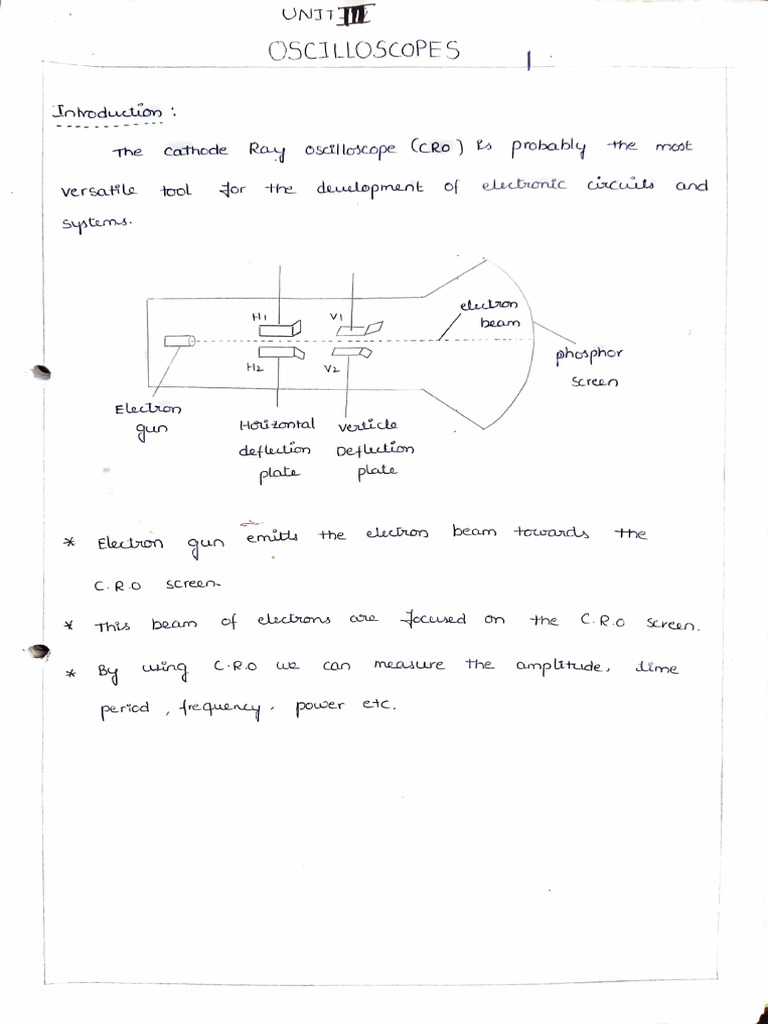 UNIT III
OSCILLOSCOPES
1
Introduction :
The cathode Ray oscilloscope (CRO) is probably the most
versatile tool for the development of electronic circuits and
systems.
H1
V1
electron
beam
phosphor
screen
H2
V2
Electron
gun
Horizontal
deflection
plate
verticle
Deflection
plate
* Electron gun emitts the electron beam towards the
C.R.O screen.
* This beam of electrons are focused on the C.R.O screen.
* By using C.R.O we can measure the amplitude, time
period, frequency, power etc.